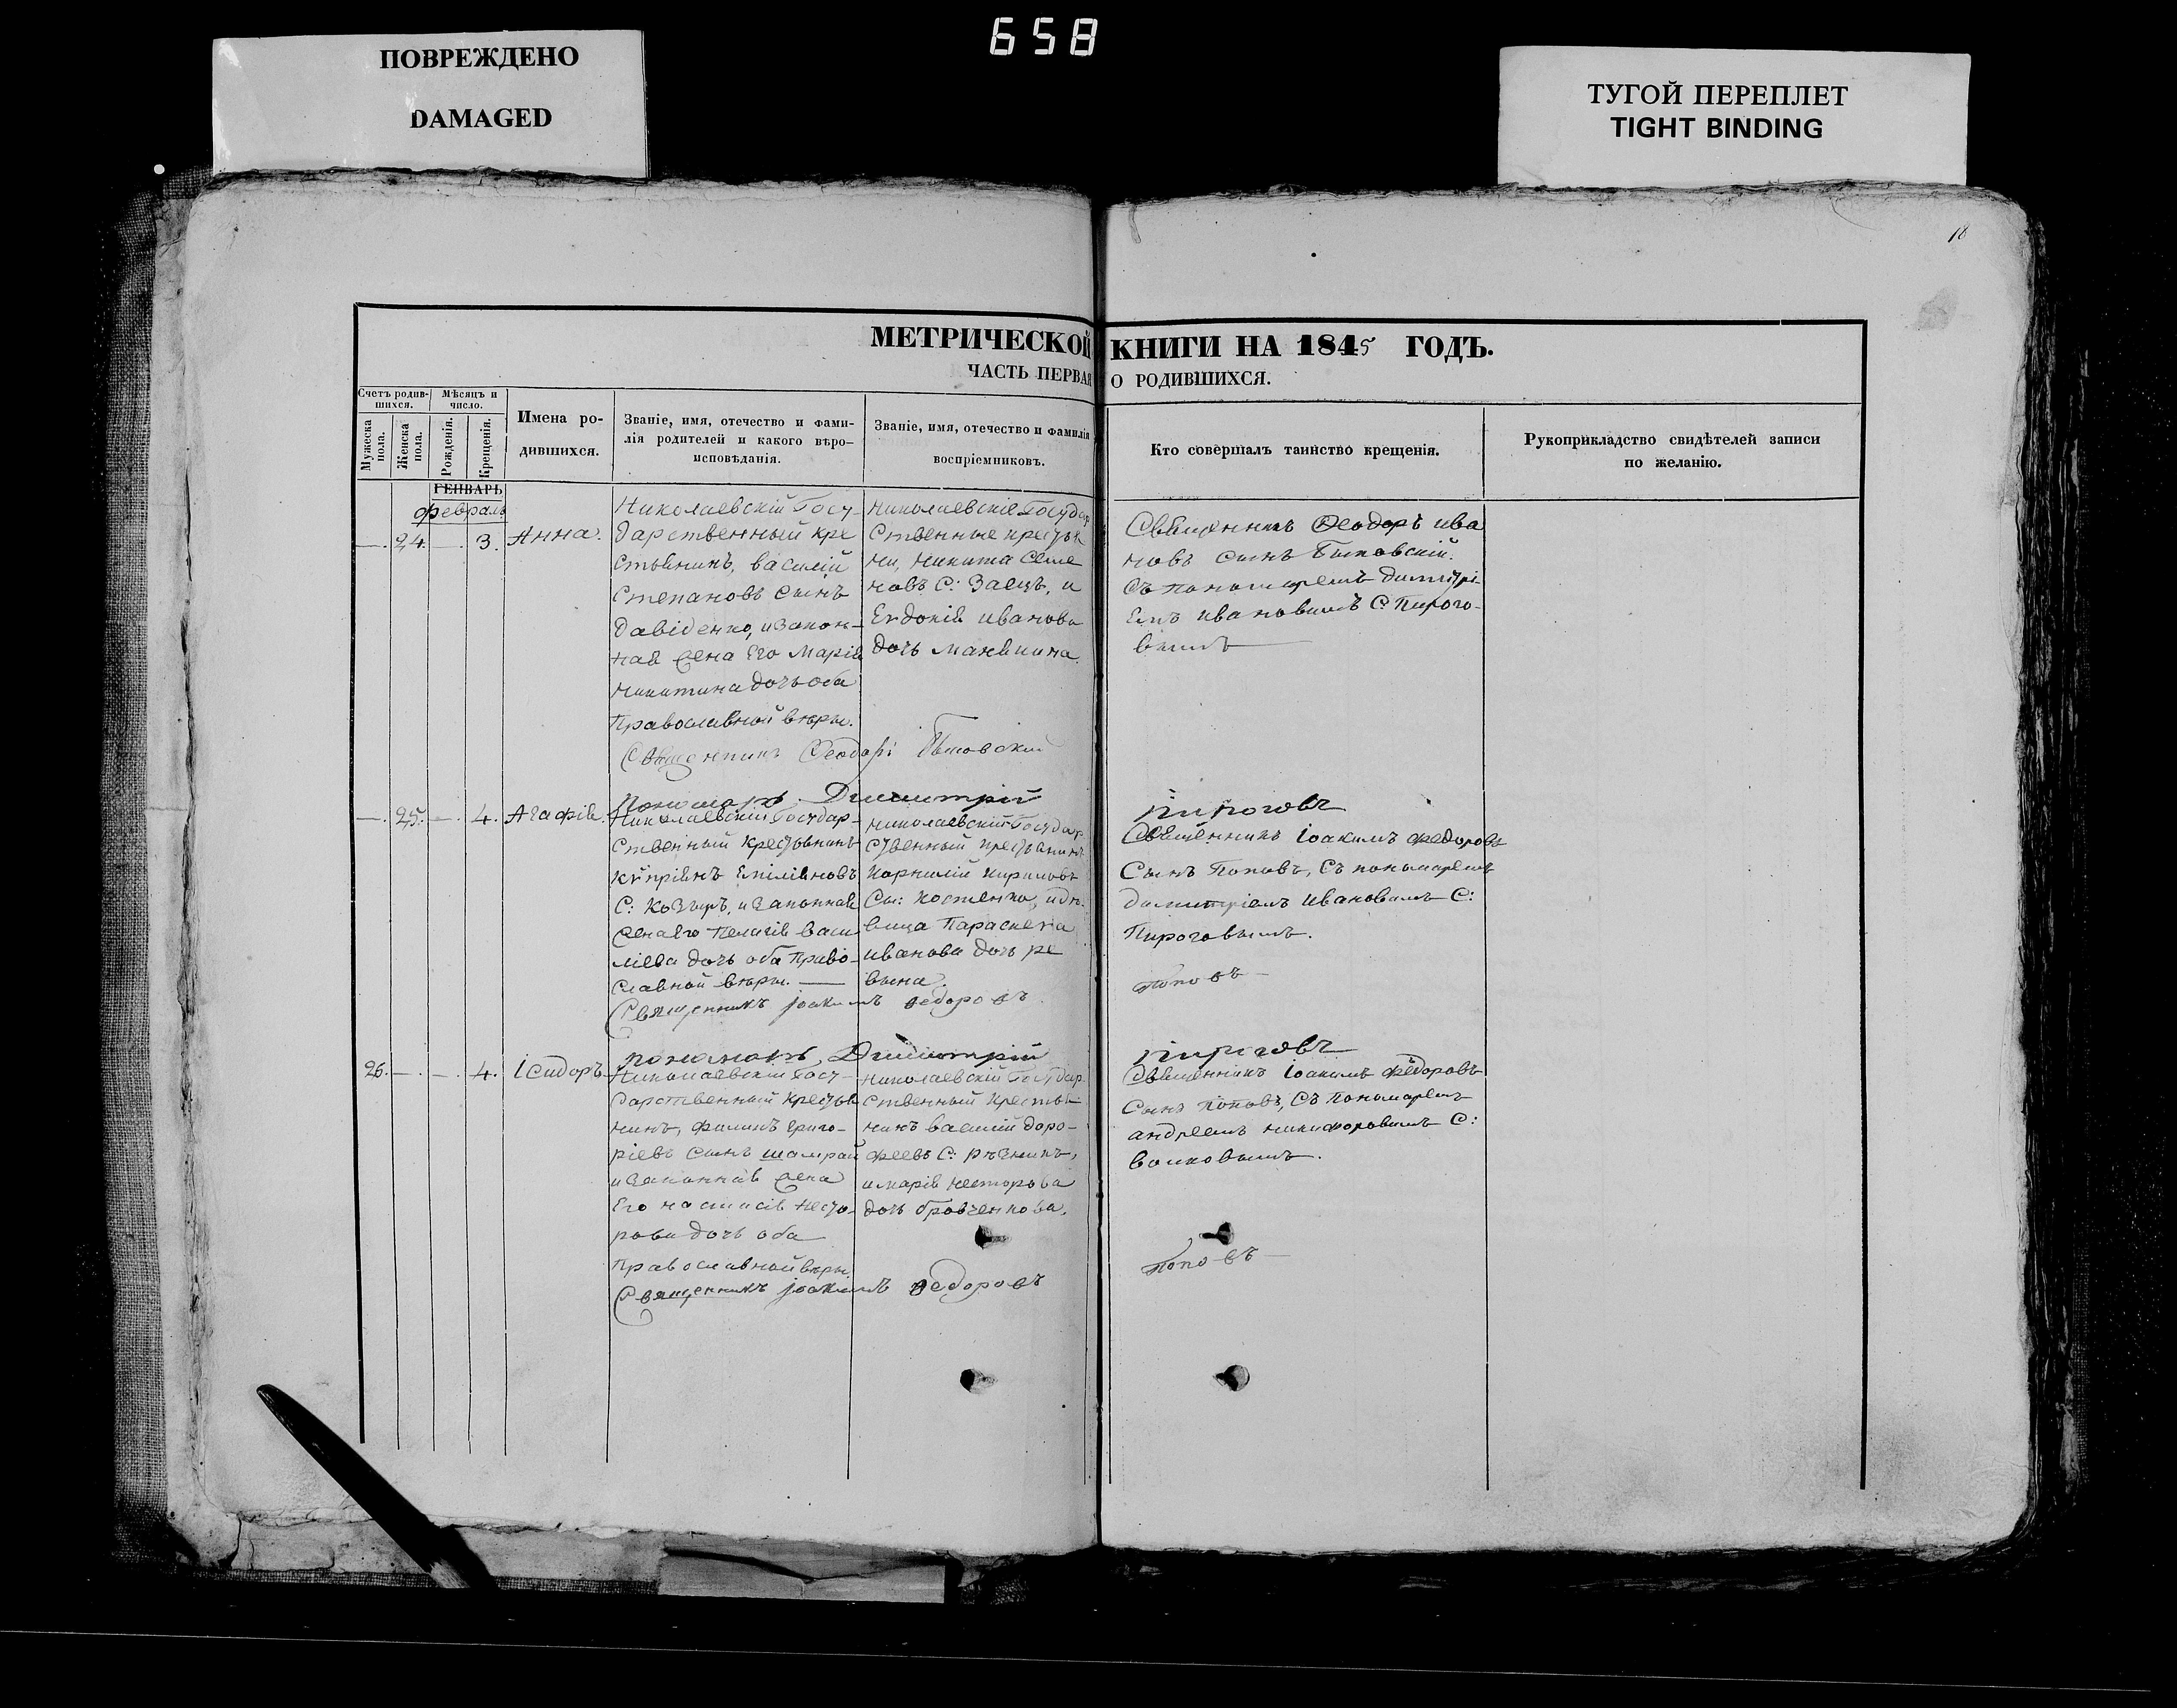 658
ПОВРЕЖДЕНО
DAMAGED
ТУГОЙ ПЕРЕПЛЕТ
TIGHT BINDING
18
МЕТРИЧЕСКОЙ КНИГИ НА 1845 ГОДЪ.
ЧАСТЬ ПЕРВАЯ О РОДИВШИХСЯ.
Счетъ родив-
шихся.
Мѣсяцъ и
число.
Мужеска
пола.
Женска
пола.
Рожденія.
Крещенія.
Имена ро-
дившихся.
Званіе, имя, отечество и фами-
лія родителей и какого вѣро-
исповѣданія.
Званіе, имя, отечество и фамилія
воспріемниковъ.
Кто совершалъ таинство крещенія.
Рукоприкладство свидѣтелей записи
по желанію.
ГЕНВАРЬ
февраль
—. 24. —. 3. Анна.
Николаевскій Госу-
дарственный кре
стьянинъ, василій
Степановъ сынъ
давіденко, и закон-
ная жена Его Марія
никитина дочь оба
Православной вѣры.
николаевскіе Государ
ственные крестья
ни, никита семе
новъ С: Заецъ, и
Евдокія иванова
дочь
Священникъ Ѳеодоръ ива
новъ сынъ Быковскій.
съ пономаремъ димитрі-
емъ ивановымъ С: Пирого-
вымъ
Священникъ Ѳеодоръ Быковскій
Пономарь Димитрій Пироговъ
—. 25. —. 4. Агафія.
Николаевскій Государ-
ственный крестьянинъ
купріянъ Емиліяновъ
С: Козыръ, и законная
жена его пелагія васи-
ліева дочь оба Право-
славной вѣры.
николаевскій Государ
ственный крестьянинъ
Корнилій кириловъ
Сы: Костенко, и дѣ-
вица Параскева
иванова дочь ре
вына.
Священникъ Іоакимъ Федоровъ
Сынъ Поповъ, Съ пономаремъ
димитріемъ ивановымъ С:
Пироговымъ.
Священникъ Іоакимъ Федоровъ Поповъ
пономарь, Димитрій Пироговъ
26. —. —. 4. Ісидоръ
Николаевскій Госу-
дарственный крестья
нинъ, филипъ григо-
ріевъ сынъ шамрай
и законная жена
Его настасія несто-
рова дочь оба
Православной вѣры
николаевскій Государ
ственный крестья
нинъ василій доро-
феевъ С: рѣзникъ,
и марія несторова
дочь бровченкова,
Священникъ Іоакимъ Федоровъ
Сынъ поповъ, Съ пономаремъ
андреемъ никифоровымъ С:
волковымъ.
Священникъ Іоакимъ Федоровъ Поповъ